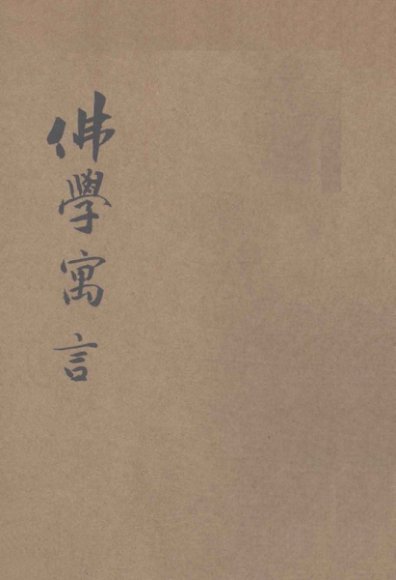 佛學寓言